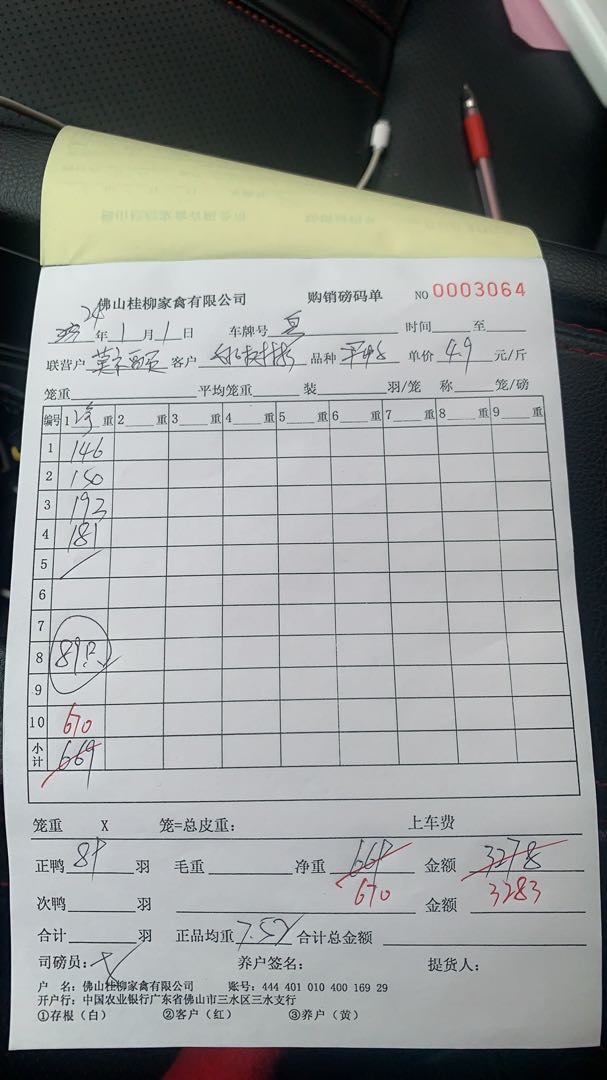 佛山桂柳家禽有限公司 购销磅码单 NO 0003064
24年1月1日 车牌号 时间 至
联营户 客户 品种 单价 4.9 元/斤
笼重 平均笼重 装 羽/笼 称 笼/磅
编号 1 净 重 2 重 3 重 4 重 5 重 6 重 7 重 8 重 9 重
1 146
2 150
3 193
4 181
5
6
7
8 89只
9
10 670
小计 669
笼重 X 笼=总皮重: 上车费
正鸭 89 羽 毛重 净重 669 金额 3278
670 3283
次鸭 羽 金额
合计 羽 正品均重 7.52 合计总金额
司磅员: 养户签名: 提货人:
户 名: 佛山桂柳家禽有限公司 账号: 444 401 010 400 169 29
开户行: 中国农业银行广东省佛山市三水区三水支行
①存根（白） ②客户（红） ③养户（黄）